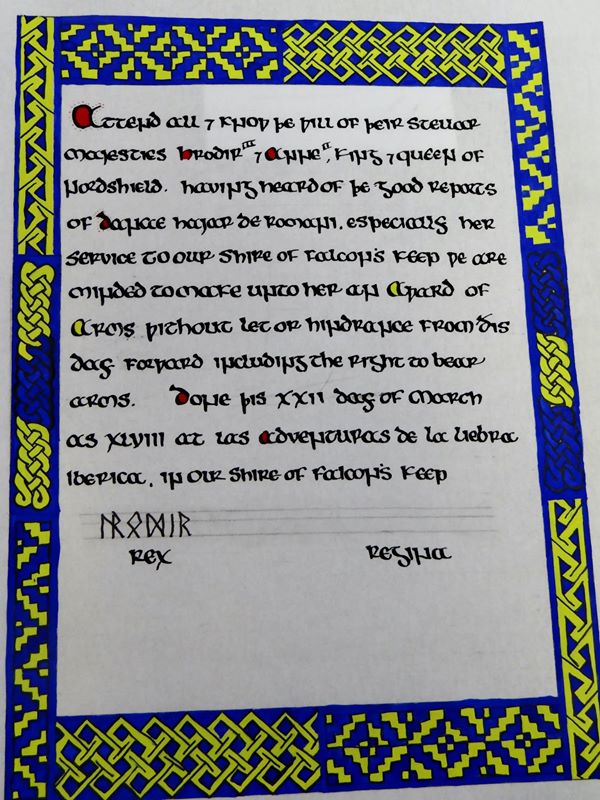 Attend all ⁊ knoƿ þe ƿill of þeir Stellar
Majesties Hrodir III ⁊ Anne II, King ⁊ Queen of
Nordshield. Having heard of þe good reports
of Hajar de Romani, especially her
service to our Shire of Falcon's Keep ƿe are
minded to make unto her an Aƿard of
Arms ƿithout let or hindrance from þis
day forƿard including the right to bear
arms. Done þis XXII day of March
AS XLVIII at Las Adventuras de la Liebra
Iberica, in our Shire of Falcon's Keep
ᚺᚱᛟᛞᛁᚱ
Rex Regina